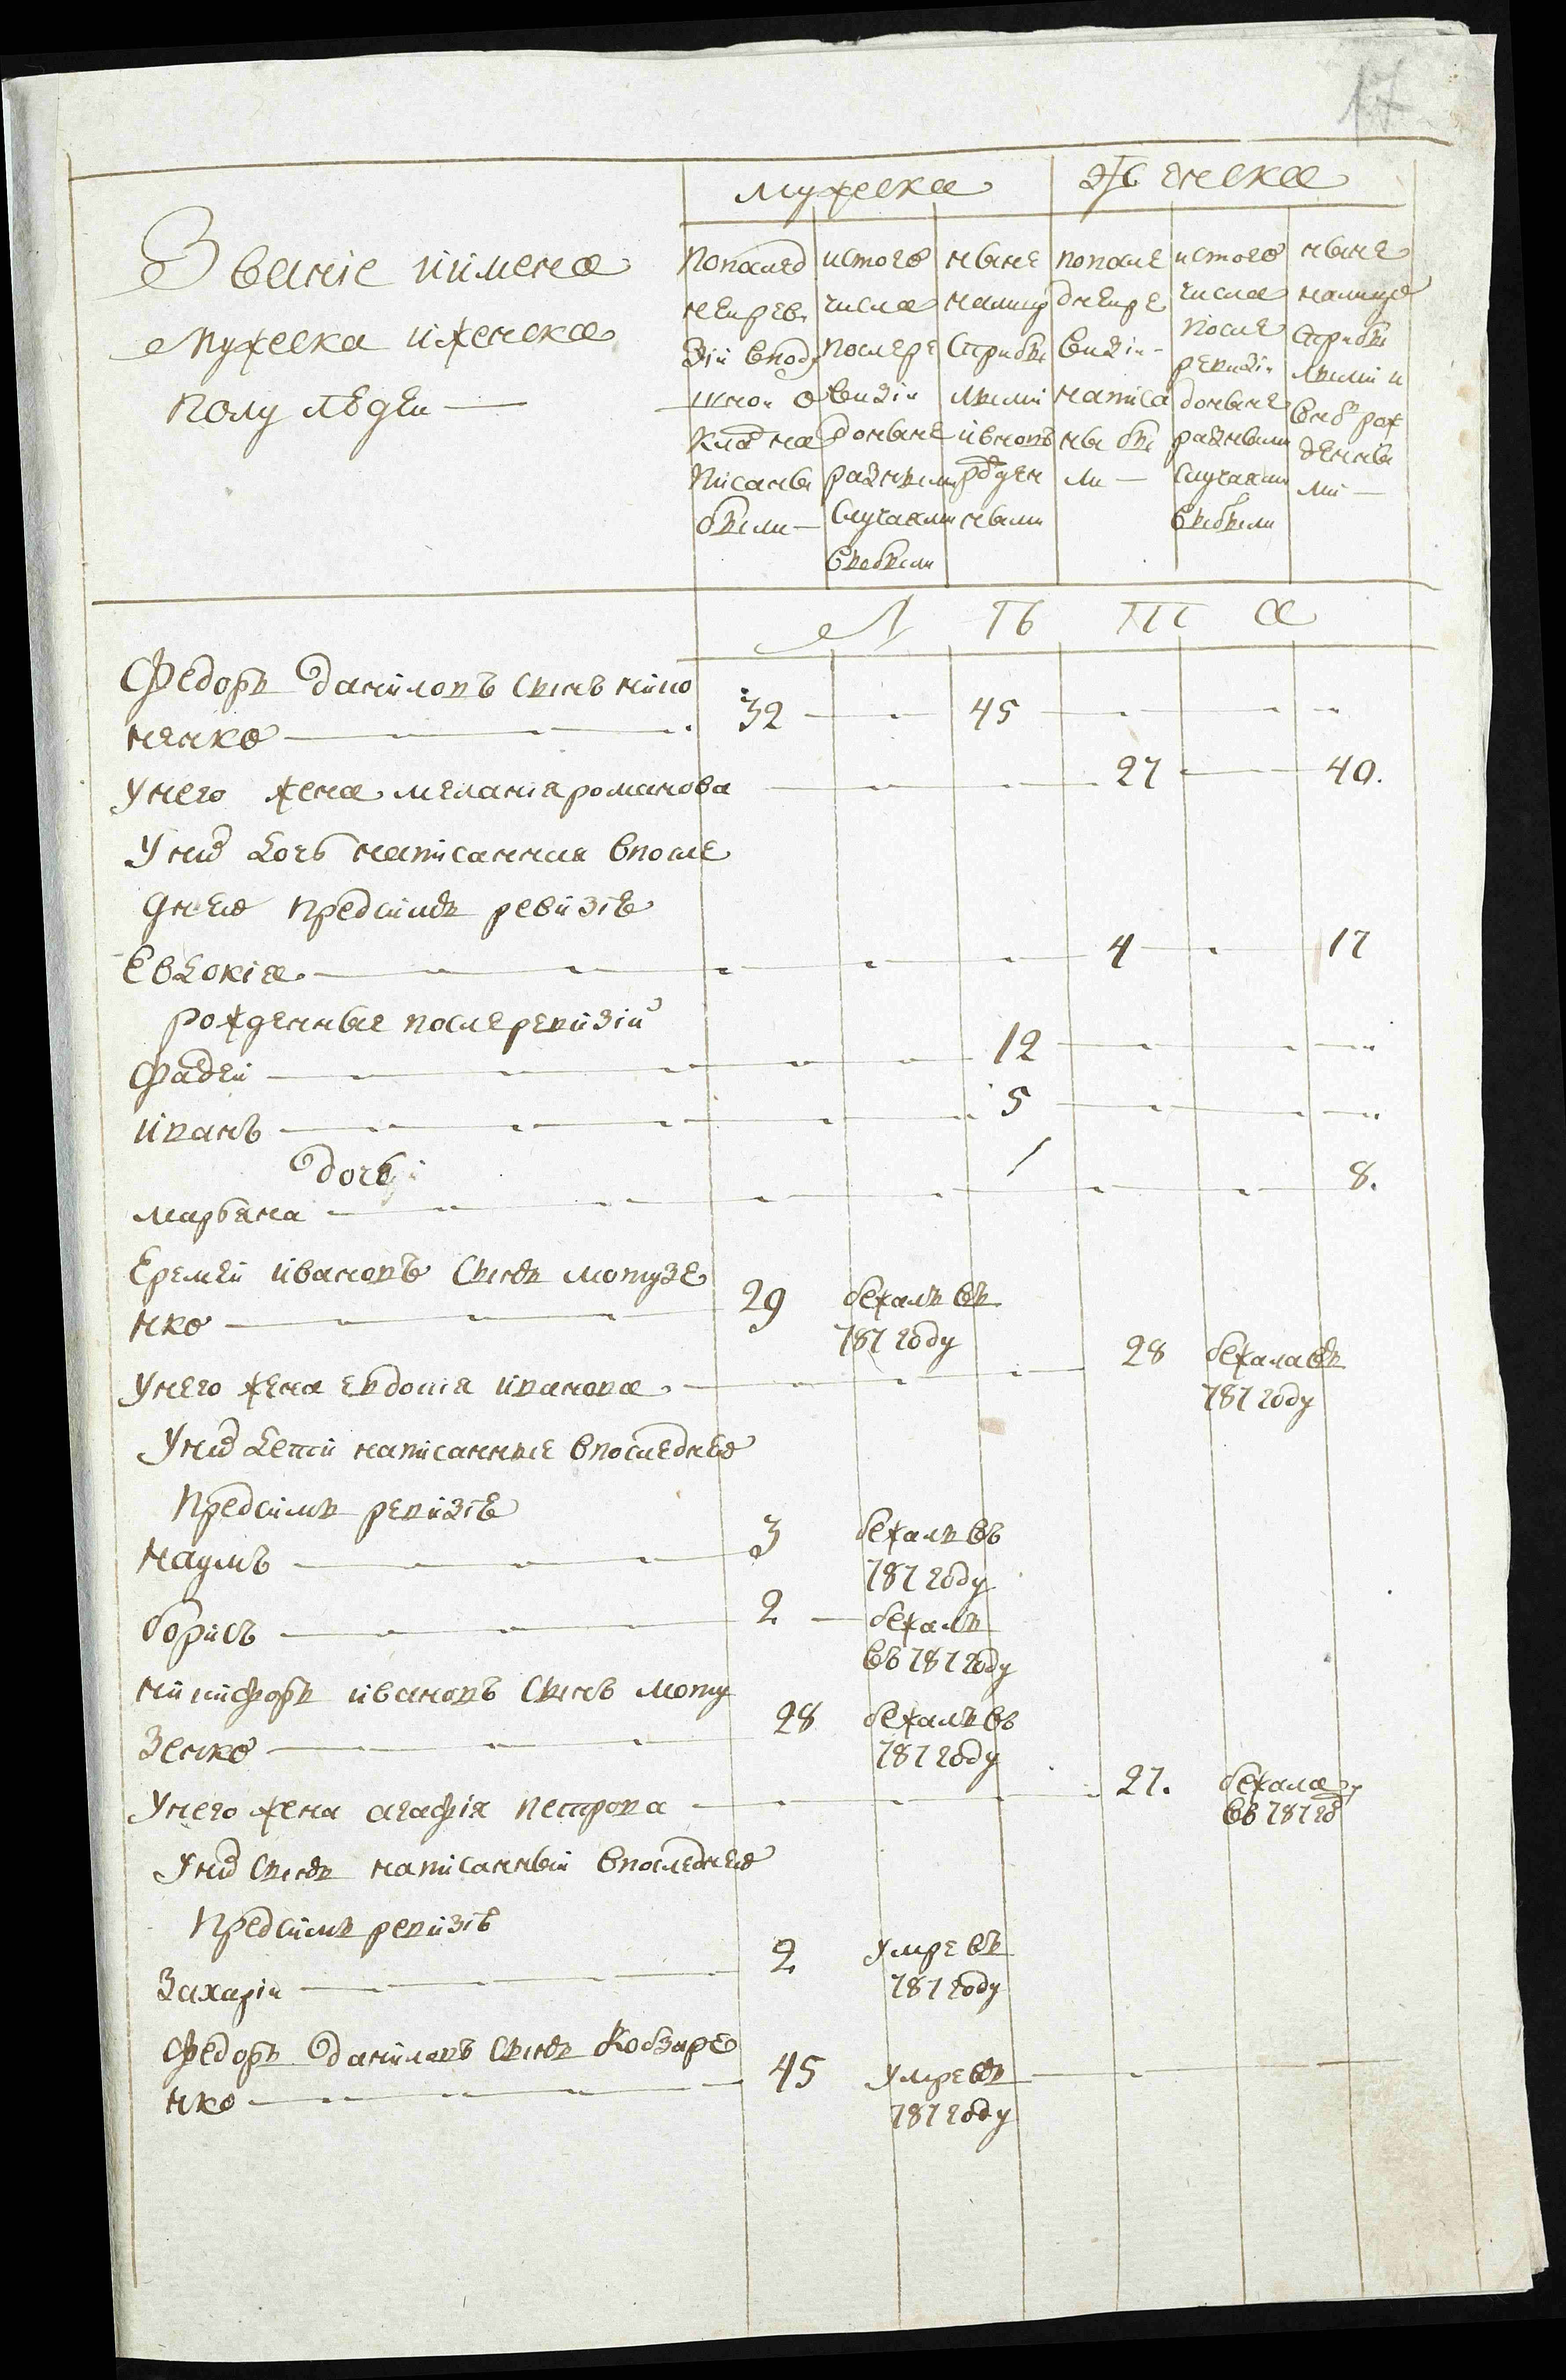 17
мужеска женска
Званіе иимена
Мужеска иженска
полу людеи —
попослед
неиреви
зіи вподу
шнои о
кладъ на
писаны
были —
истого
числа
послере
визіи
доныне
разными
случаями
выбыли
ныне
налицо
сприбы
лыми
ивновь
рожден
ными
попосле
днеире
визіи —
написа
ны бы
ли —
истого
числа
после
ревизіи
доныне
разными
случаями
выбыли
ныне
налицо
сприбы
лыми и
вновь рож
денны
ми —
Л ѣ т а
Федоръ даниловъ сынъ
ненко — 32 — 45 —
Унего жена меланія романова — 27 — 40.
Уних дочь написанная впосле
днею предсимъ ревизіе
Евдокія — 4 — 17
рожденные послеревизіи
Фадеи — 12 —
иванъ — 5 —
дочь
Марьяна — 8.
Еремеи ивановъ сынъ мотузе
нко — 29 бежалъ въ
787 году
Унего жена евдотія иванова — 28 бежала въ
787 году
Уних дети написанные впоследнею
Предсимъ ревизіе
Наумъ — 3 бежалъ въ
787 году
борисъ — 2 — бежалъ
въ 787 году
Никифоръ ивановъ сынъ моту
зенко — 28 бежалъ въ
787 году
Унего жена агафія петрова — 27. бежала
въ 787 год
Уних сынъ написанныи впоследнею
Предсимъ ревизіе
Захаріи — 2 умре въ
787 году
Федоръ даниловъ сынъ Кобзаре
нко — 45 умре въ —
787 году